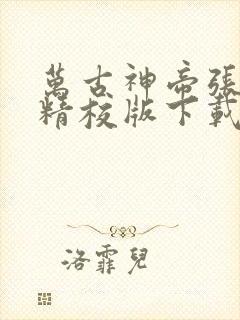 萬古神帝張
精校版下載
洛霏兒